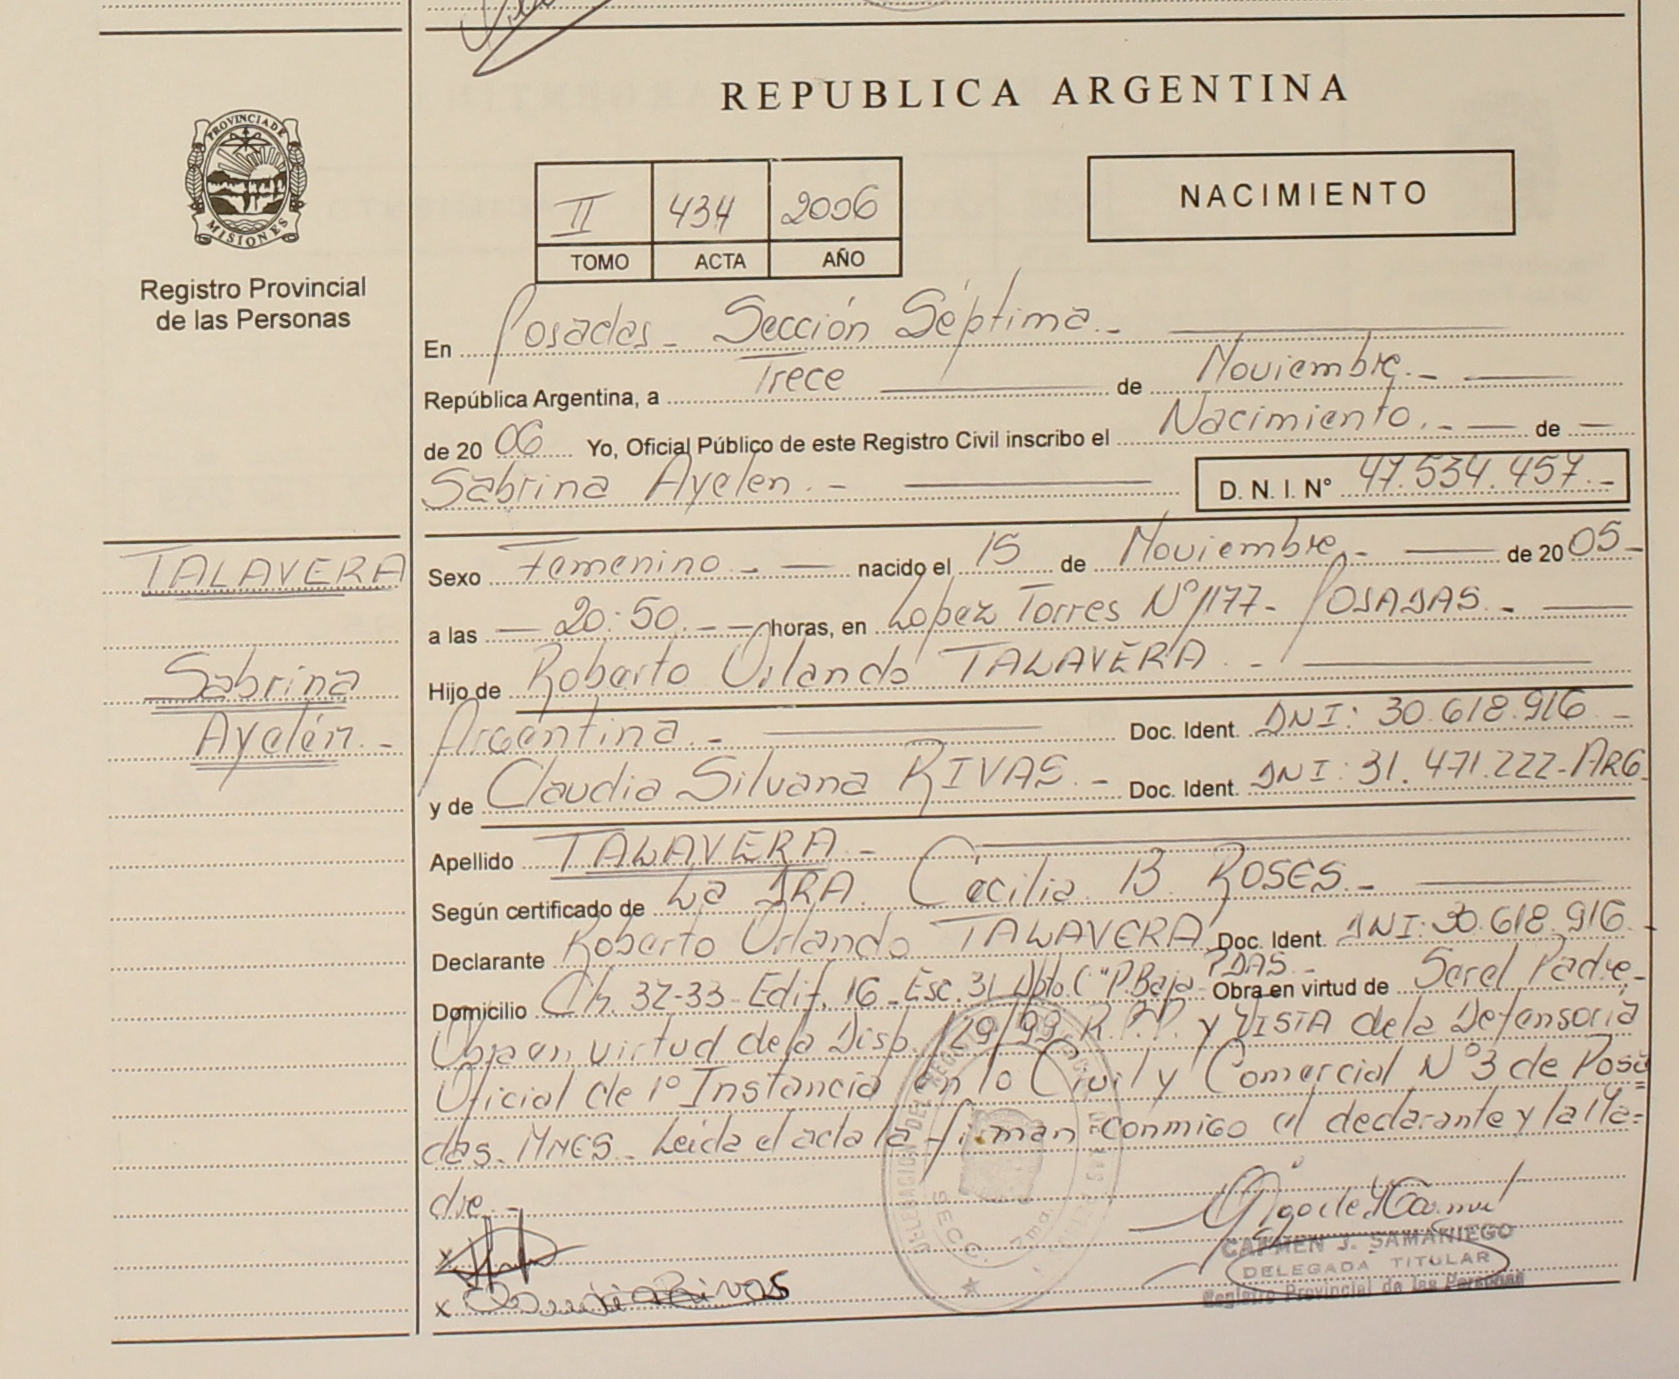 REPUBLICA ARGENTINA
PROVINCIA DE MISIONES
Registro Provincial
de las Personas
II 434 2006
TOMO ACTA AÑO
NACIMIENTO
En Posadas - Sección Séptima. -
República Argentina, a Trece de Noviembre. -
de 20 06 Yo, Oficial Público de este Registro Civil inscribo el Nacimiento. - de
Sabrina Ayelen. - D. N. I. N° 47.534.457. -
TALAVERA
Sabrina
Ayelén. -
Sexo Femenino. - nacido el 15 de Noviembre. - de 20 05 -
a las 20:50. - horas, en Lopez Torres N° 1177 - POSADAS. -
Hijo de Roberto Orlando TALAVERA. -
Argentina. - Doc. Ident. DNI: 30.618.916 -
y de Claudia Silvana RIVAS. - Doc. Ident. DNI: 31.471.222 - ARG.
Apellido TALAVERA -
Según certificado de La DRA. Cecilia B ROSES. -
Declarante Roberto Orlando TALAVERA Doc. Ident. DNI: 30.618.916
Domicilio Ch. 32-33 - Edif. 16 - Esc. 31 Dpto. C "P. Baja PDAS. - Obra en virtud de Ser el Padre -
Obra en virtud de la Disp. 129/99 R.P.P. y VISTA de la Defensoría
Oficial de 1° Instancia en lo Civil y Comercial N° 3 de Posa
das - MNES - Leida el acta la firman conmigo el declarante y la Ma=
dre. -
DELEGACION DEL REGISTRO
SECC. 7ma.
x
x Claudia Rivas
CARMEN J. SAMANIEGO
DELEGADA TITULAR
Registro Provincial de las Personas